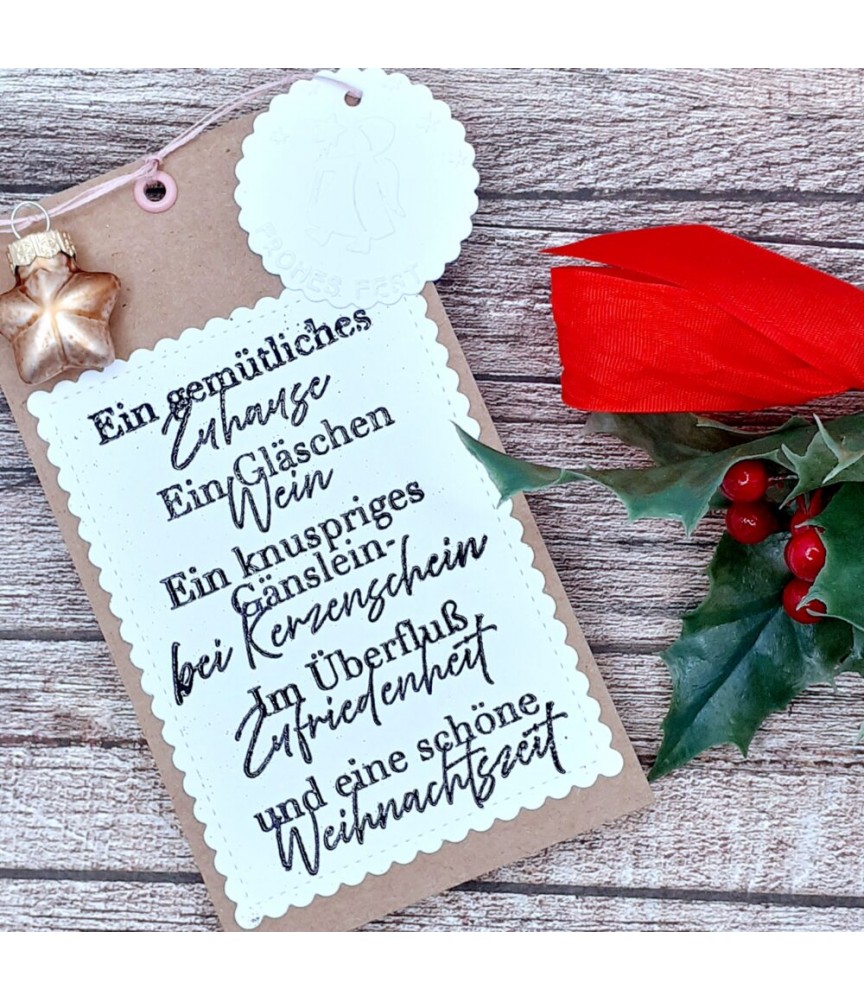 FROHES FEST
Ein gemütliches
Zuhause
Ein Gläschen
Wein
Ein knuspriges
Gänslein-
bei Kerzenschein
Im Überfluß
Zufriedenheit
und eine schöne
Weihnachtszeit